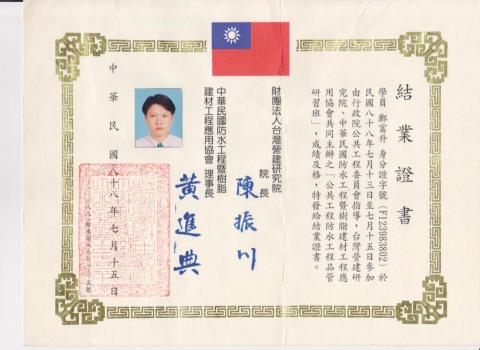 結業證書
學員 鄭富升 身分證字號(F123983802)於
民國八十八年七月十三日至七月十五日參加
由行政院公共工程委員會指導，台灣營建研
究院、中華民國防水工程暨樹脂建材工程應
用協會共同主辦之「公共工程防水工程品管
研習班」，成績及格，特發給結業證書。
財團法人台灣營建研究院
院長
陳振川
中華民國防水工程暨樹脂
建材工程應用協會 理事長
黃進興
中華民國八十八年七月十五日